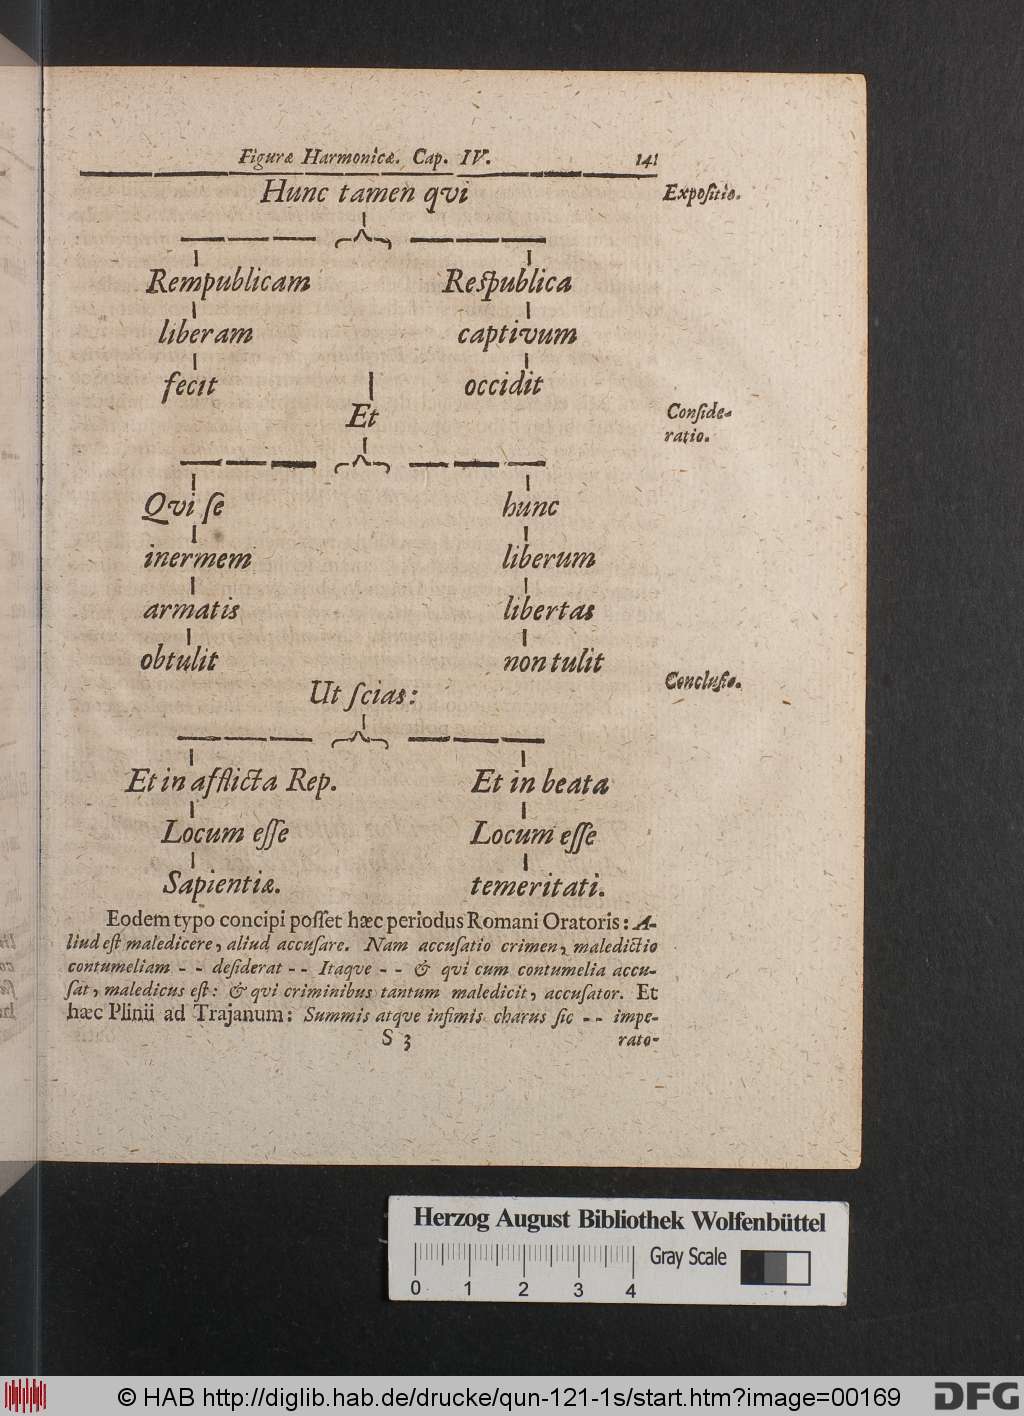 Figuræ Harmonicæ. Cap. IV. 141
Hunc tamen qvi
Expoſitio.
Rempublicam Reſpublica
liberam captivum
fecit occidit
Et
Conſide-
ratio.
Qvi ſe hunc
inermem liberum
armatis libertas
obtulit non tulit
Concluſio.
Ut ſcias:
Et in afflicta Rep. Et in beata
Locum eſſe Locum eſſe
Sapientiæ. temeritati.
Eodem typo concipi poſſet hæc periodus Romani Oratoris: A-
liud eſt maledicere, aliud accuſare. Nam accuſatio crimen, maledictio
contumeliam - - deſiderat - - Itaqve - - & qvi cum contumelia accu-
ſat, maledicus eſt: & qvi criminibus tantum maledicit, accuſator. Et
hæc Plinii ad Trajanum: Summis atqve infimis charus ſic - - impe-
S 3 rato-
Herzog August Bibliothek Wolfenbüttel
Gray Scale
0 1 2 3 4
© HAB http://diglib.hab.de/drucke/qun-121-1s/start.htm?image=00169
DFG